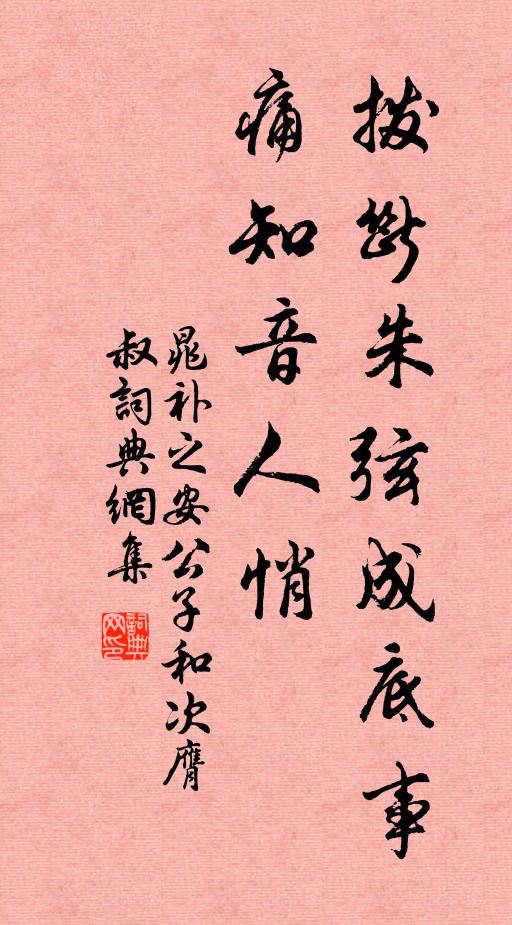 拨断朱弦成底事
痛知音人悄
晁补之安公子和次膺
叔詞典網集
詞典网印